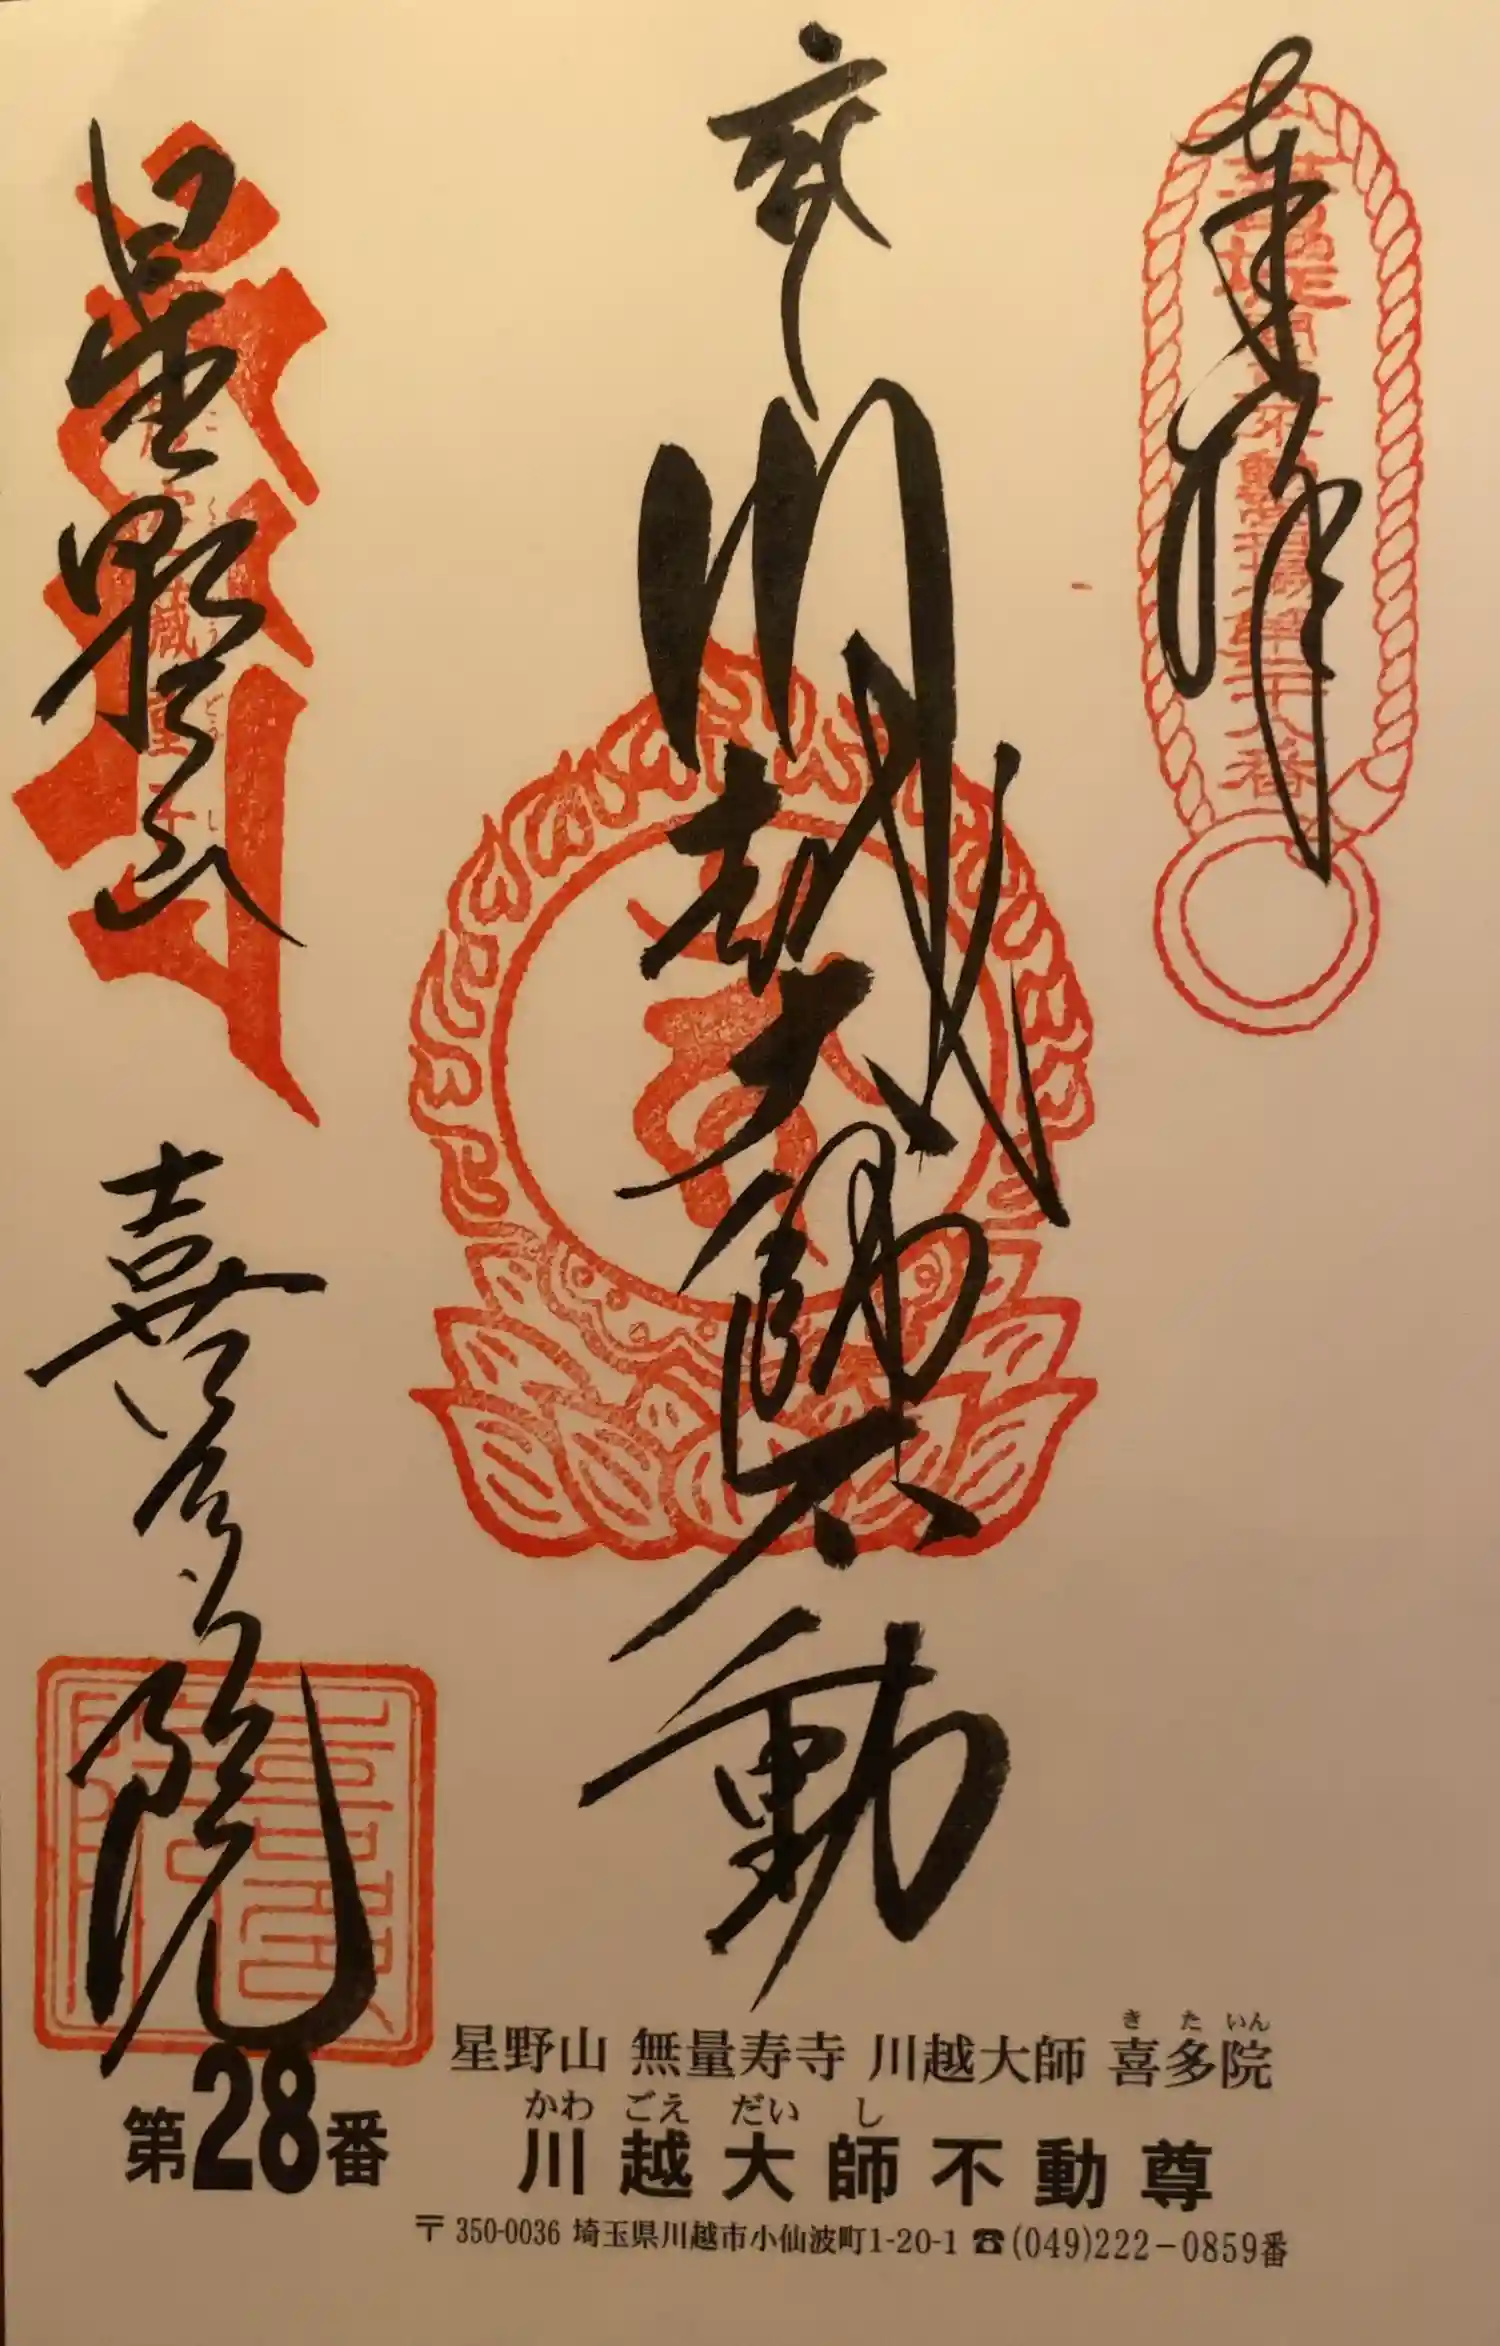 奉拝
川越大師
不動
星野山
喜多院
第28番
きたいん
星野山 無量寿寺 川越大師 喜多院
かわごえだいし
川越大師不動尊
〒350-0036 埼玉県川越市小仙波町1-20-1 ☎(049)222-0859番